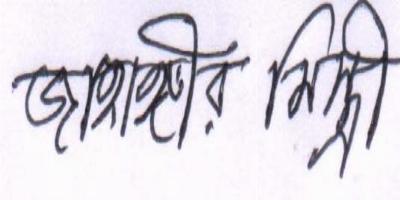 জাহাঙ্গীর মিস্ত্রী